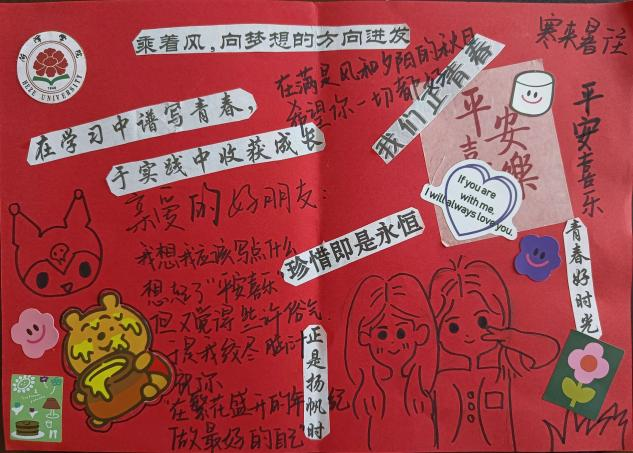 菏泽学院
HEZE UNIVERSITY
乘着风,向梦想的方向进发
寒来暑往
在满是风和夕阳的秋日
希望你一切都好
我们正青春
在学习中谱写青春,
于实践中收获成长
平安
喜樂
平安喜乐
If you are
with me,
I will always love you.
亲爱的好朋友:
我想我应该写点什么
想起了“平安喜乐”
但又觉得些许俗气
于是我绞尽脑汁
祝你
“在繁花盛开的年纪
做最好的自己”
珍惜即是永恒
正是扬帆时
青春好时光